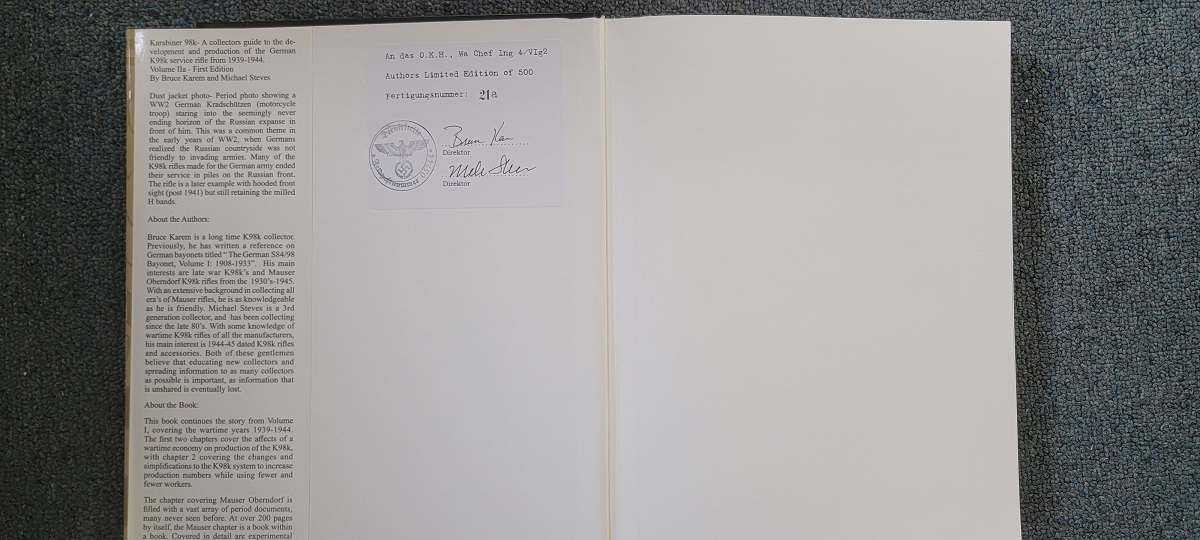 Karabiner 98k- A collectors guide to the de-
velopment and production of the German
K98k service rifle from 1939-1944.
Volume IIa - First Edition
By Bruce Karem and Michael Steves
Dust jacket photo- Period photo showing a
WW2 German Kradschützen (motorcycle
troop) staring into the seemingly never
ending horizon of the Russian expanse in
front of him. This was a common theme in
the early years of WW2, when Germans
realized the Russian countryside was not
friendly to invading armies. Many of the
K98k rifles made for the German army ended
their service in piles on the Russian front.
The rifle is a later example with hooded front
sight (post 1941) but still retaining the milled
H bands.
About the Authors:
Bruce Karem is a long time K98k collector.
Previously, he has written a reference on
German bayonets titled “ The German S84/98
Bayonet, Volume I: 1908-1933”. His main
interests are late war K98k's and Mauser
Oberndorf K98k rifles from the 1930's-1945.
With an extensive background in collecting all
era's of Mauser rifles, he is as knowledgeable
as he is friendly. Michael Steves is a 3rd
generation collector, and has been collecting
since the late 80's. With some knowledge of
wartime K98k rifles of all the manufacturers,
his main interest is 1944-45 dated K98k rifles
and accessories. Both of these gentlemen
believe that educating new collectors and
spreading information to as many collectors
as possible is important, as information that
is unshared is eventually lost.
About the Book:
This book continues the story from Volume
I, covering the wartime years 1939-1944.
The first two chapters cover the affects of a
wartime economy on production of the K98k,
with chapter 2 covering the changes and
simplifications to the K98k system to increase
production numbers while using fewer and
fewer workers.
The chapter covering Mauser Oberndorf is
filled with a vast array of period documents,
many never seen before. At over 200 pages
by itself, the Mauser chapter is a book within
a book. Covered in detail are experimental
An das O.K.H., Wa Chef Ing 4/VIg2
Authors Limited Edition of 500
Fertigungsnummer: 21a
Dienststelle
Direktor
Direktor